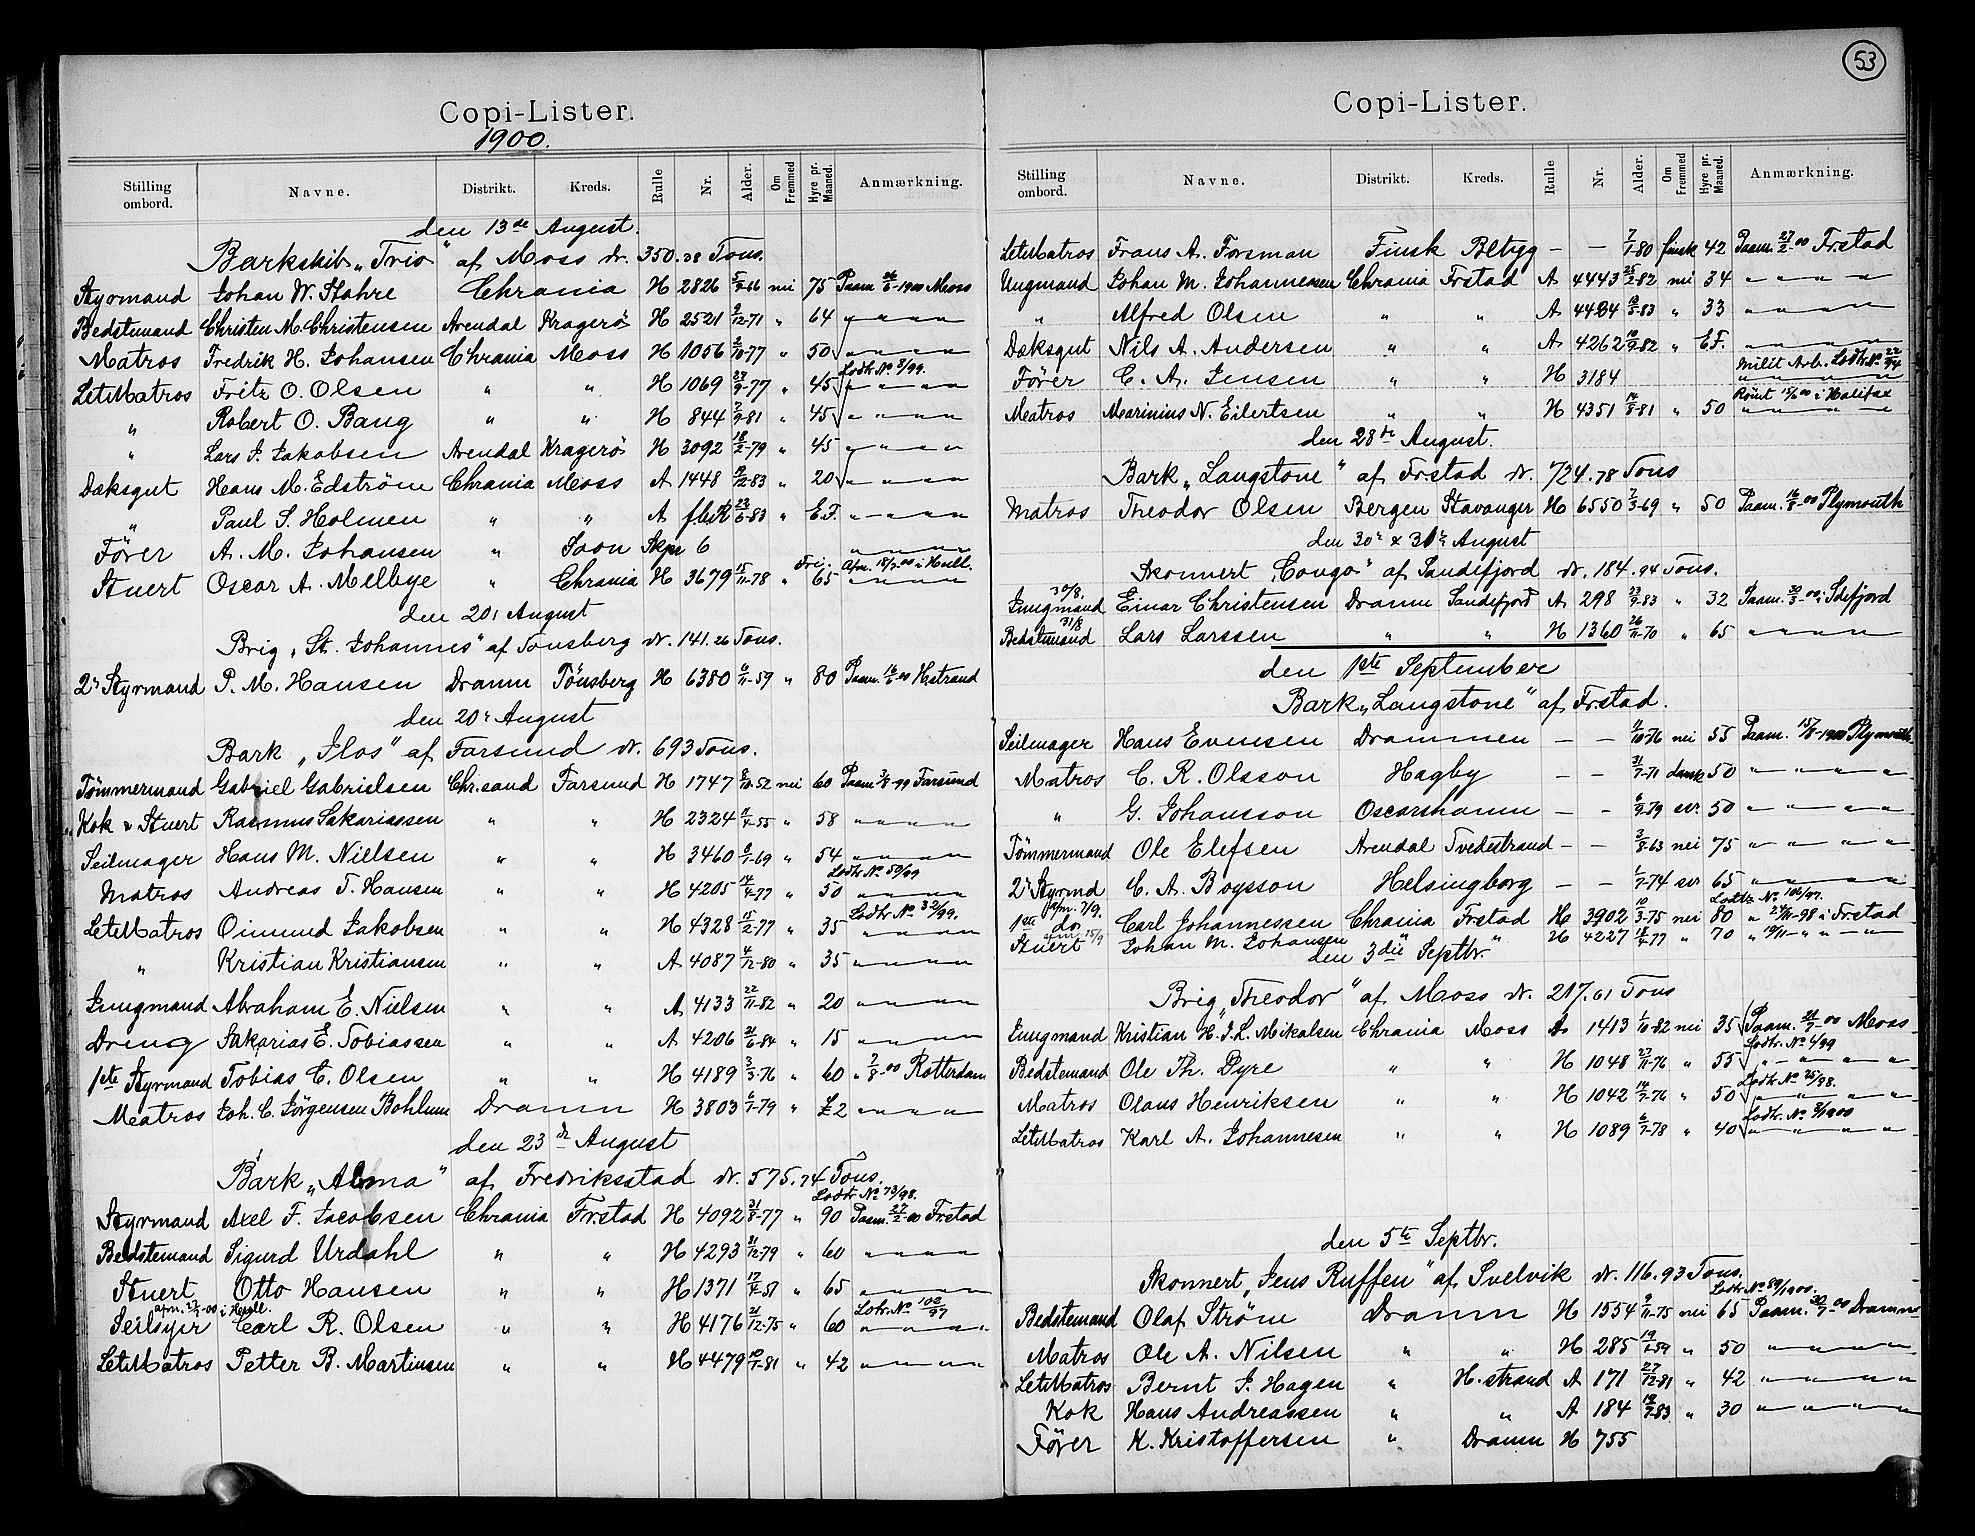 Copi-Lister.
1900.
Stilling ombord. Navne. Distrikt. Kreds. Rulle Nr. Alder. Om Fremmed Hyre pr. Maaned. Anmærkning.
den 13de August.
Barkskib „Trio" af Moss dr. 350.38 Tons.
Styrmand Johan W. Stahre Chrania H 2826 nei 75 Paam. 1900 Moss
Bedstemand Christen M. Christensen Arendal Kragerö H 2521 2/12-71 " 64 " " " "
Matros Fredrik H. Johansen Chrania Moss H 1056 2/10-77 " 50 " " " "
Lodtr. No 2/99.
LetMatros Fritz O. Olsen " " H 1069 27/9-77 " 45 " " " "
" Robert O. Bang " " H 844 7/9-81 " 45 " " " "
" Lars J. Jakobsen Arendal Kragerö H 3092 18/2-79 " 45 " " " "
Dæksgut Hans M. Edström Chrania Moss A 1448 12-83 " 20 " " " "
" Paul S. Holmen " " A 23/6-83 " E.F. " " " "
Förer A. M. Johansen " Soon Skpr 6 " " " "
Fri. Afm. 18/7 00 i Hull.
Stuert Oscar A. Melbye " Chrania H 3679 15/11-78 " 65 " " " "
den 20. August
Brig „St. Johannes" af Tonsberg dr. 141.26 Tons.
2. Styrmand P. M. Hansen Dramn Tönsberg H 6380 11-59 " 80 Paam. 16/6-00 H.strand
den 20. August
Bark „Flos" af Farsund dr. 693 Tons.
Tömmermand Gabriel Gabrielsen Chr.sand Farsund H 1747 10-52 nei 60 Paam. 3/8-99 Farsund
Kok & Stuert Rasmus Sakariassen " " H 2324 4-55 " 58 " " " "
Seilmager Hans M. Nielsen " " H 3460 1-69 " 54 " " " "
Lodtr. No. 50/99
Matros Andreas T. Hansen " " H 4205 14/4-77 " 50 " " " "
Lodtr. No. 32/99.
LetMatros Oimund Jakobsen " " H 4328 11/2-77 " 35 " " " "
" Kristian Kristiansen " " A 4087 4/12-80 " 35 " " " "
Jungmand Abraham E. Nielsen " " A 4133 22/11-82 " 20 " " " "
Dreng Sakarias E. Tobiassen " " A 4206 21/6-84 " 15 " " " "
1ste Styrmand Tobias C. Olsen " " H 4189 3/3-76 " 60 " 7/8-00 Rotterdam
Matros Joh. C. Jörgensen Bohlum Dramn H 3803 6/1-79 " £2 " " " "
den 23de August
Bark „Alma" af Fredriksstad dr. 575.74 Tons.
Lodtr. No. 73/98.
Styrmand Axel F. Jacobsen Chrania Fr.stad H 4092 31/8-77 " 90 Paam. 27/2-00 Fr.stad
Bedstemand Sigurd Urdahl " " H 4293 31/12-79 " 60 " " " "
Stuert Otto Hansen " " H 1371 17/4-51 " 65 " " " "
afm. 27/7-00 i Hull. Lodtr. No. 102/97
Seilsyer Carl R. Olsen " " H 4176 21/12-75 " 60 " " " "
LetMatros Petter B. Martinsen " " H 4479 19/1-81 " 42 " " " "
53
Copi-Lister.
Stilling ombord. Navne. Distrikt. Kreds. Rulle Nr. Alder. Om Fremmed Hyre pr. Maaned. Anmærkning.
LetMatros Frans A. Forsman Finsk — — 7/1-80 finsk 42 Paam. 27/2-00 Fr.stad
Ungmand Johan M. Johannessen Chrania Frstad A 4443 25/2-82 nei 34 " " " "
" Alfred Olsen " " A 4484 18/3-83 " 33 " " " "
Dæksgut Nils A. Andersen " " A 4262 19/9-82 " E.F. " " " "
Milit. Arb. Lodtr. No. 22/94
Förer C. A. Jensen " " H 3184 " " " "
Römt 15/6 00 i Halifax
Matros Marinius N. Eilertsen " " H 4351 14/8-81 " 50 " " " "
den 28de August.
Bark „Langstone" af Fr.stad dr. 724.78 Tons
Matros Theodor Olsen Bergen Stavanger H 6550 7/3-69 " 50 Paam. 16/8-00 Plymouth
den 30. & 31. August
Skonnert „Congo" af Sandefjord dr. 184.94 Tons.
30/8.
Jungmand Einar Christensen Dramn Sandefjord A 298 23/9-83 " 32 Paam. 20/3-00 i Sdefjord
31/8
Bedstemand Lars Larssen " " H 1360 26/11-70 " 65 " " " "
den 1ste September
Bark „Langstone" af Fr.stad.
Seilmager Hans Evensen Drammen — — 11/10-76 nei 55 Paam. 15/8-1900 Plymouth
Matros C. R. Olsson Hagby — — 31/7-71 dansk 50 " " " "
" G. Johansson Oscarshamn — — 6/9-79 sv. 50 " " " "
Tömmermand Ole Elefsen Arendal Tvedestrand — — 3/8-63 nei 75 " " " "
2. Styrmd C. A. Boysson Helsingborg — — 1/7-74 sv 65 " " " "
afm. 7/9. Lodtr. No. 106/97.
1ste do. Carl Johannessen Chrania Frstad H 3902 10/3-75 nei 80 " 24/11-98 i Fr.stad
afm. 15/9
Stuert Johan M. Johansen " " H 4227 18/4-77 " 70 " 19/11 " " "
den 3die Septbr.
Brig „Theodor" af Moss dr. 217.61 Tons
Jungmand Kristian H. J. L. Mikalsen Chrania Moss A 1413 1/10-82 nei 35 Paam. 21/7-00 Moss
Lodtr. No 4/99
Bedstemand Ole Th. Dyre " " H 1048 27/11-76 " 55 " " " "
Lodtr. No 25/98.
Matros Olaus Henriksen " " H 1042 14/7-76 " 50 " " " "
Lodtr. No. 2/1900
LetMatros Karl A. Johannesen " " H 1089 6/7-78 " 40 " " " "
den 5te Septbr.
Skonnert „Jens Ruffen" af Svelvik dr. 116.93 Tons.
Lodtr. No 89/1900.
Bedstemand Olaf Ström Dramn H 1554 9/11-75 nei 65 Paam. 30/7-00 Dramn
Matros Ole A. Nilsen " " H 285 19/1-59 " 50 " " " "
LetMatros Bernt J. Hagen " H.strand A 171 27/12-81 " 42 " " " "
Kok Hans Andreassen " " A 184 19/7-83 " 30 " " " "
Förer K. Kristoffersen " Dramn H 755